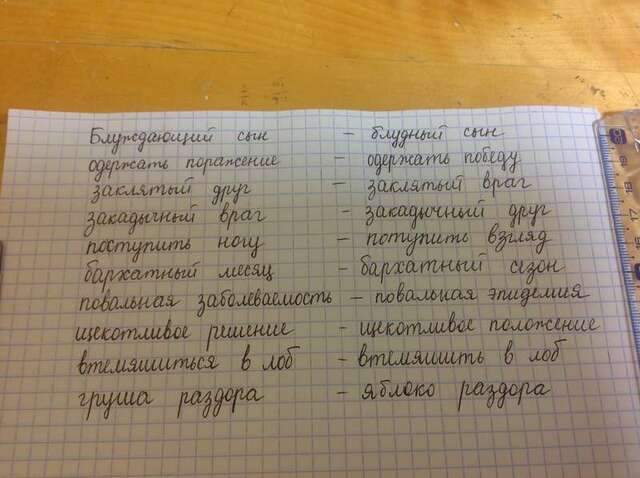 Блуждающий сын – блудный сын
одержать поражение – одержать победу
заклятый друг – заклятый враг
закадычный враг – закадычный друг
поступить ногу – поступить взгляд
бархатный месяц – бархатный сезон
повальная заболеваемость – повальная эпидемия
щекотливое решение – щекотливое положение
втемяшиться в лоб – втемяшить в лоб
груша раздора – яблоко раздора